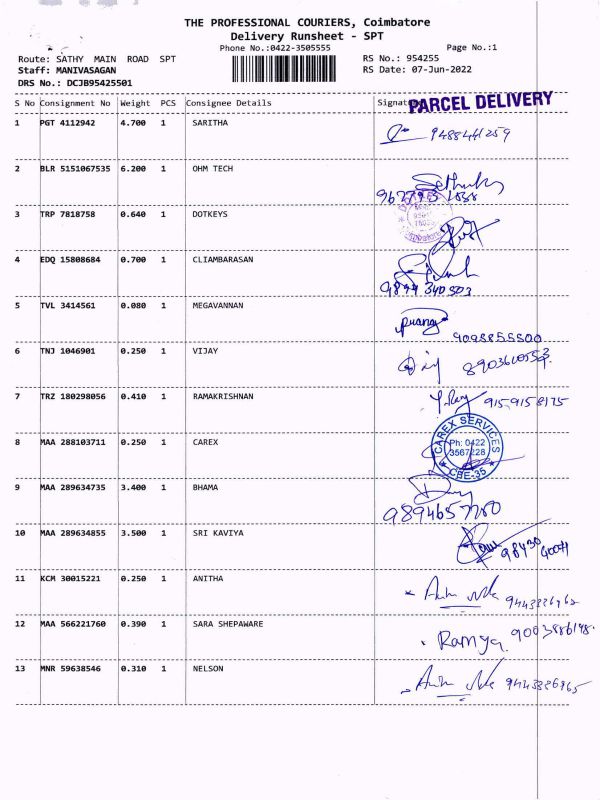 THE PROFESSIONAL COURIERS, Coimbatore
Delivery Runsheet - SPT
Phone No.:0422-3505555 Page No.:1
Route: SATHY MAIN ROAD SPT RS No.: 954255
Staff: MANIVASAGAN RS Date: 07-Jun-2022
DRS No.: DCJB95425501
S No Consignment No Weight PCS Consignee Details Signat
PARCEL DELIVERY
1 PGT 4112942 4.700 1 SARITHA
2 BLR 5151067535 6.200 1 OHM TECH
3 TRP 7818758 0.640 1 DOTKEYS
4 EDQ 15808684 0.700 1 CLIAMBARASAN
9894 340503
5 TVL 3414561 0.080 1 MEGAVANNAN
9098855500
6 TNJ 1046901 0.250 1 VIJAY
8903610553
7 TRZ 180298056 0.410 1 RAMAKRISHNAN
9159158175
8 MAA 288103711 0.250 1 CAREX
CAREX SERVICES
Ph: 0422
3567228
CBE-35
9 MAA 289634735 3.400 1 BHAMA
10 MAA 289634855 3.500 1 SRI KAVIYA
11 KCM 30015221 0.250 1 ANITHA
12 MAA 566221760 0.390 1 SARA SHEPAWARE
Ramya 9003886148
13 MNR 59638546 0.310 1 NELSON